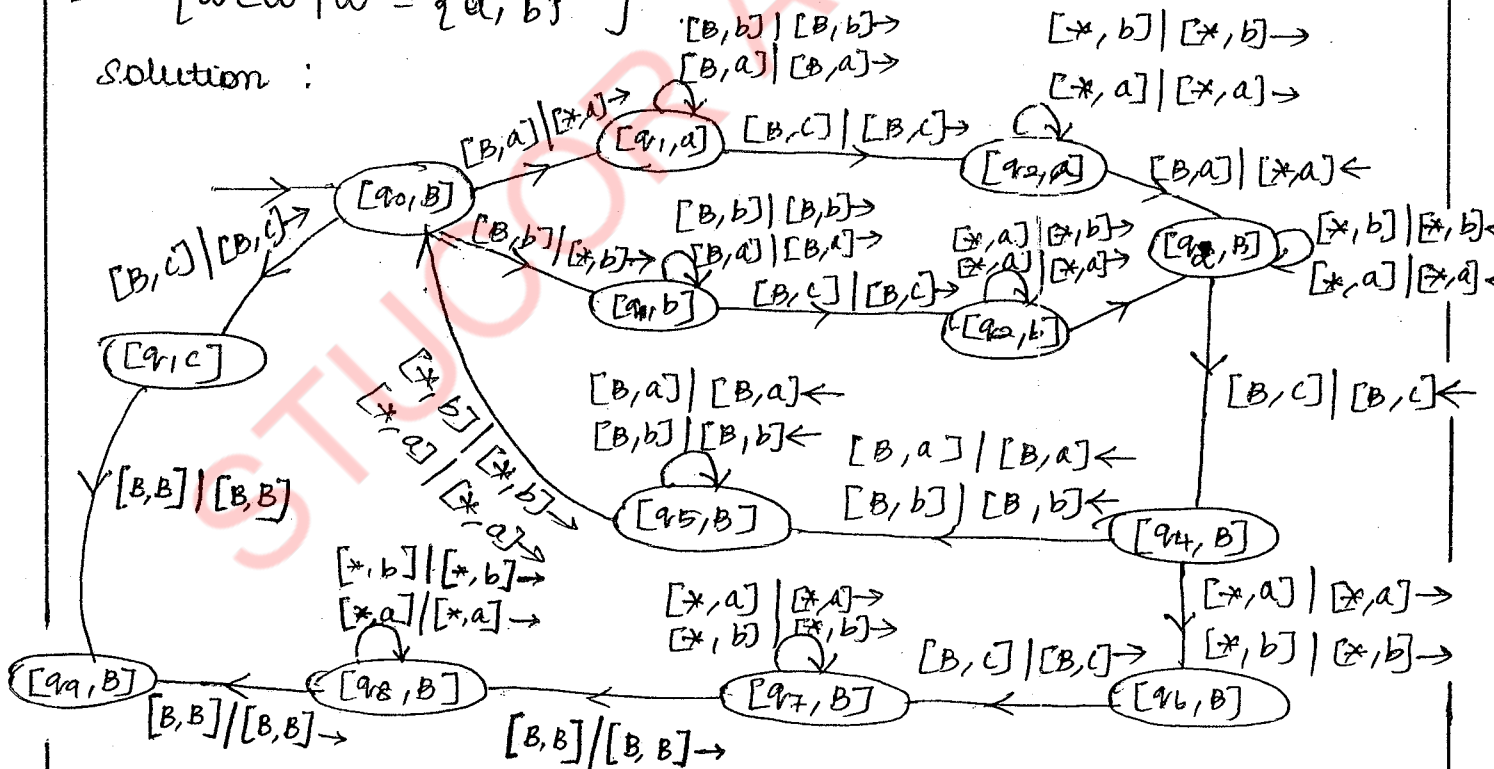 solution :
[B,b] | [B,b]→
[B,a] | [B,a]→
[*,b] | [*,b]→
[*,a] | [*,a]→
[B,a] | [*,a]→
[q1,a]
[B,C] | [B,C]→
[q2,a]
[B,a] | [*,a]←
[q0,B]
[B,b] | [*,b]→
[B,b] | [B,b]→
[B,a] | [B,a]→
[*,a] | [*,b]→
[*,a] | [*,a]→
[*,b] | [*,b]←
[*,a] | [*,a]←
[B,C] | [B,C]→
[q1,b]
[B,C] | [B,C]→
[q2,b]
[q,C]
[B,C] | [B,C]←
[*,b] | [*,b]→
[*,a] | [*,a]→
[B,a] | [B,a]←
[B,b] | [B,b]←
[B,a] | [B,a]←
[B,b] | [B,b]←
[B,B] | [B,B]
[q5,B]
[q4,B]
[*,b] | [*,b]→
[*,a] / [*,a]→
[*,a] | [*,a]→
[*,b] | [*,b]→
[*,a] | [*,a]→
[*,b] | [*,b]→
[B,C] | [B,C]→
[q9,B]
[q8,B]
[q7,B]
[q6,B]
[B,B] / [B,B]→
[B,B] / [B,B]→
STUCOR A